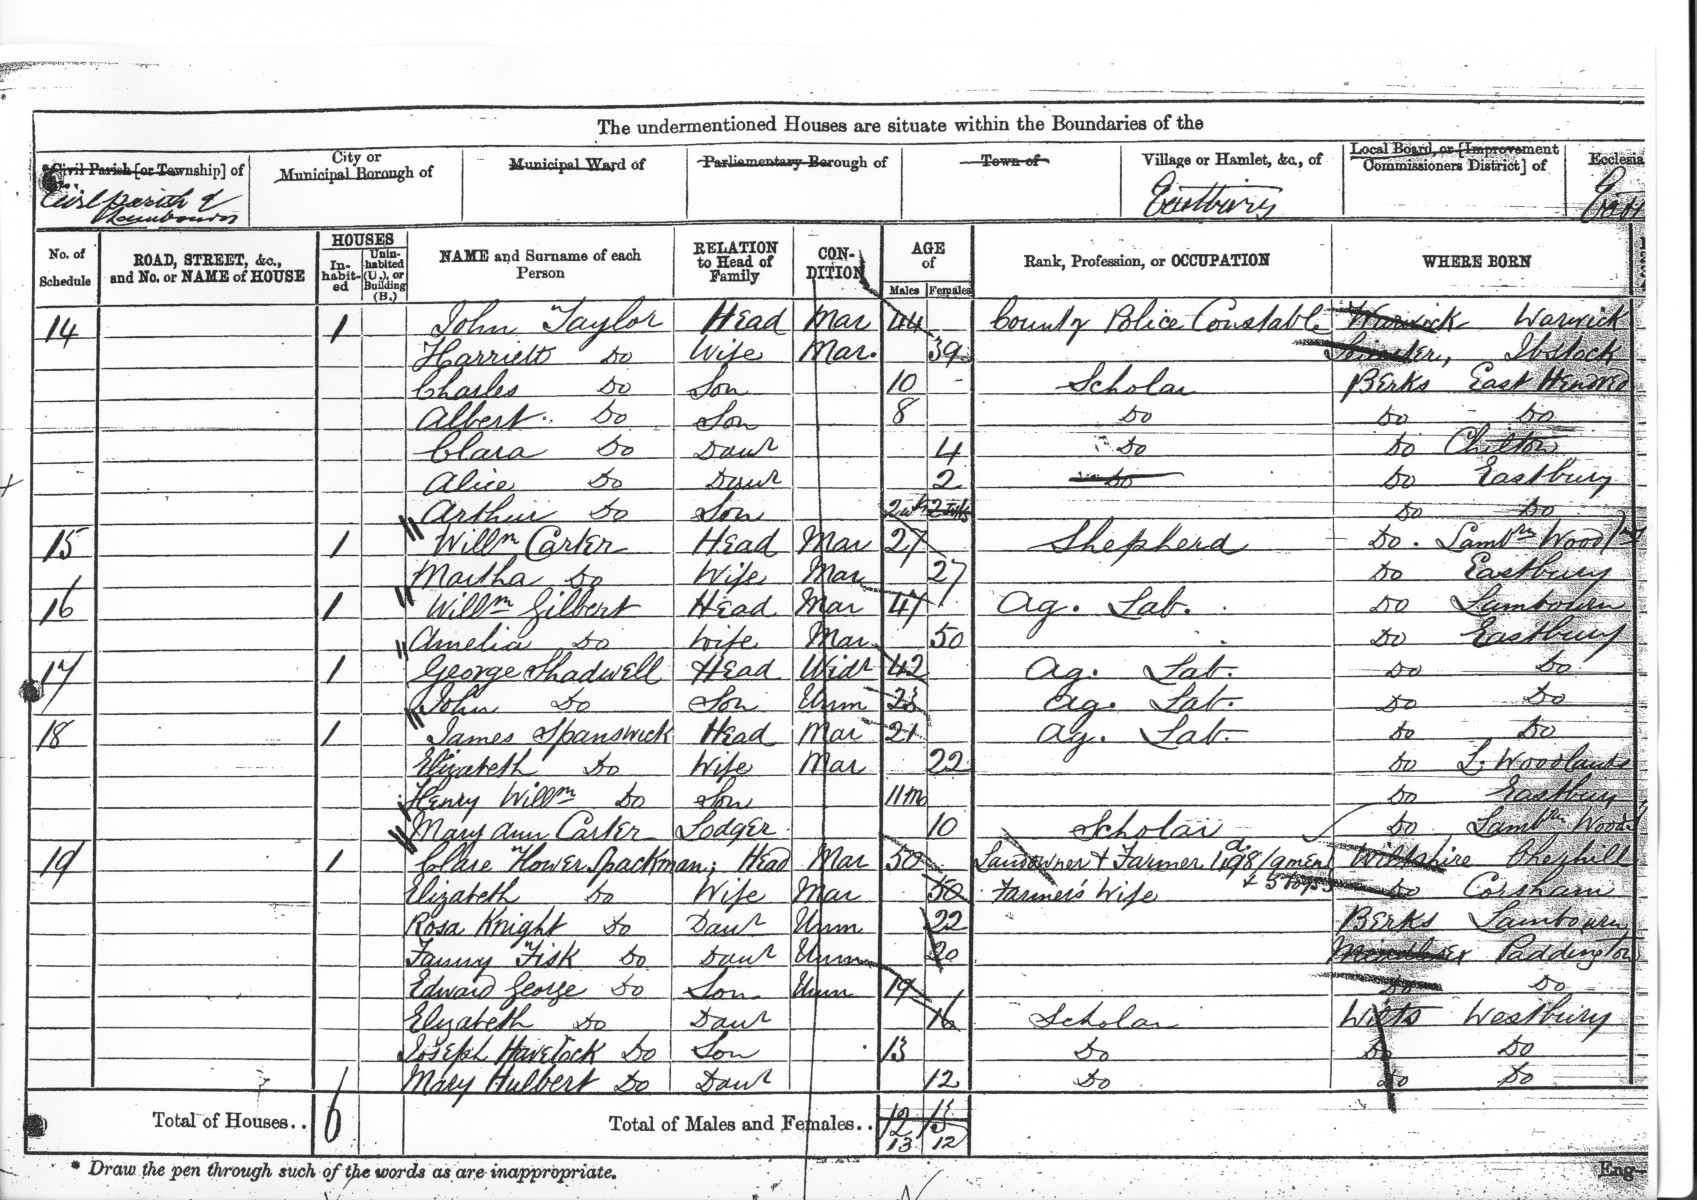 The undermentioned Houses are situate within the Boundaries of the
Civil Parish [or Township] of
City or Municipal Borough of
Municipal Ward of
Parliamentary Borough of
Town of
Village or Hamlet, &c., of
Local Board, or [Improvement Commissioners District] of
Ecclesia
Civil Parish of Lambourn
Eastbury
No. of Schedule
ROAD, STREET, &c., and No. or NAME of HOUSE
HOUSES
In-habit-ed
Unin-habited (U.), or Building (B.)
NAME and Surname of each Person
RELATION to Head of Family
CON-DITION
AGE of
Males Females
Rank, Profession, or OCCUPATION
WHERE BORN
14 1 John Taylor Head Mar 44 County Police Constable Warwick Warwick
Harriett Do Wife Mar. 39 Ibstock
Charles Do Son 10 Scholar Berks East Hendred
Albert Do Son 8 Do Do Do
Clara Do Daur 4 Do Do Chilton
Alice Do Daur 2 Do Do Eastbury
Arthur Do Son 2 wks Do Do
15 1 Willm Carter Head Mar 27 Shepherd Do. Lambrn Woodlds
Martha Do Wife Mar 27 Do Eastbury
16 1 Willm Gilbert Head Mar 47 Ag. Lab. Do Lambourn
Amelia Do Wife Mar 50 Do Eastbury
17 1 George Shadwell Head Widr 42 Ag. Lab. Do Do
John Do Son Unm 23 Ag. Lab. Do Do
18 1 James Spanswick Head Mar 21 Ag. Lab. Do Do
Elizabeth Do Wife Mar 22 Do L. Woodlands
Henry Willm Do Son 11m Do Eastbury
Mary Ann Carter Lodger 10 Scholar Do Lambrn Woods
19 1 Clare Flower Spackman; Head Mar 50 Landowner & Farmer Wiltshire Cherhill
Elizabeth Do Wife Mar 50 Farmer's Wife & 5 boys Do Corsham
Rosa Knight Do Daur Unm 22 Berks Lambourn
Fanny Fisk Do Daur Unm 20 Middlesex Paddington
Edward George Do Son Unm 19 Do Do
Elizabeth Do Daur 16 Scholar Wilts Westbury
Joseph Havelock Do Son 13 Do Do Do
Mary Hulbert Do Daur 12 Do Do Do
Total of Houses.. 6 Total of Males and Females.. 12 13
13 12
* Draw the pen through such of the words as are inappropriate.
Eng